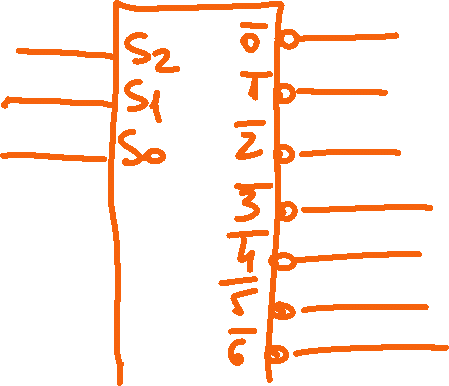 S2
S1
S0
0̅
1̅
2̅
3̅
4̅
5̅
6̅